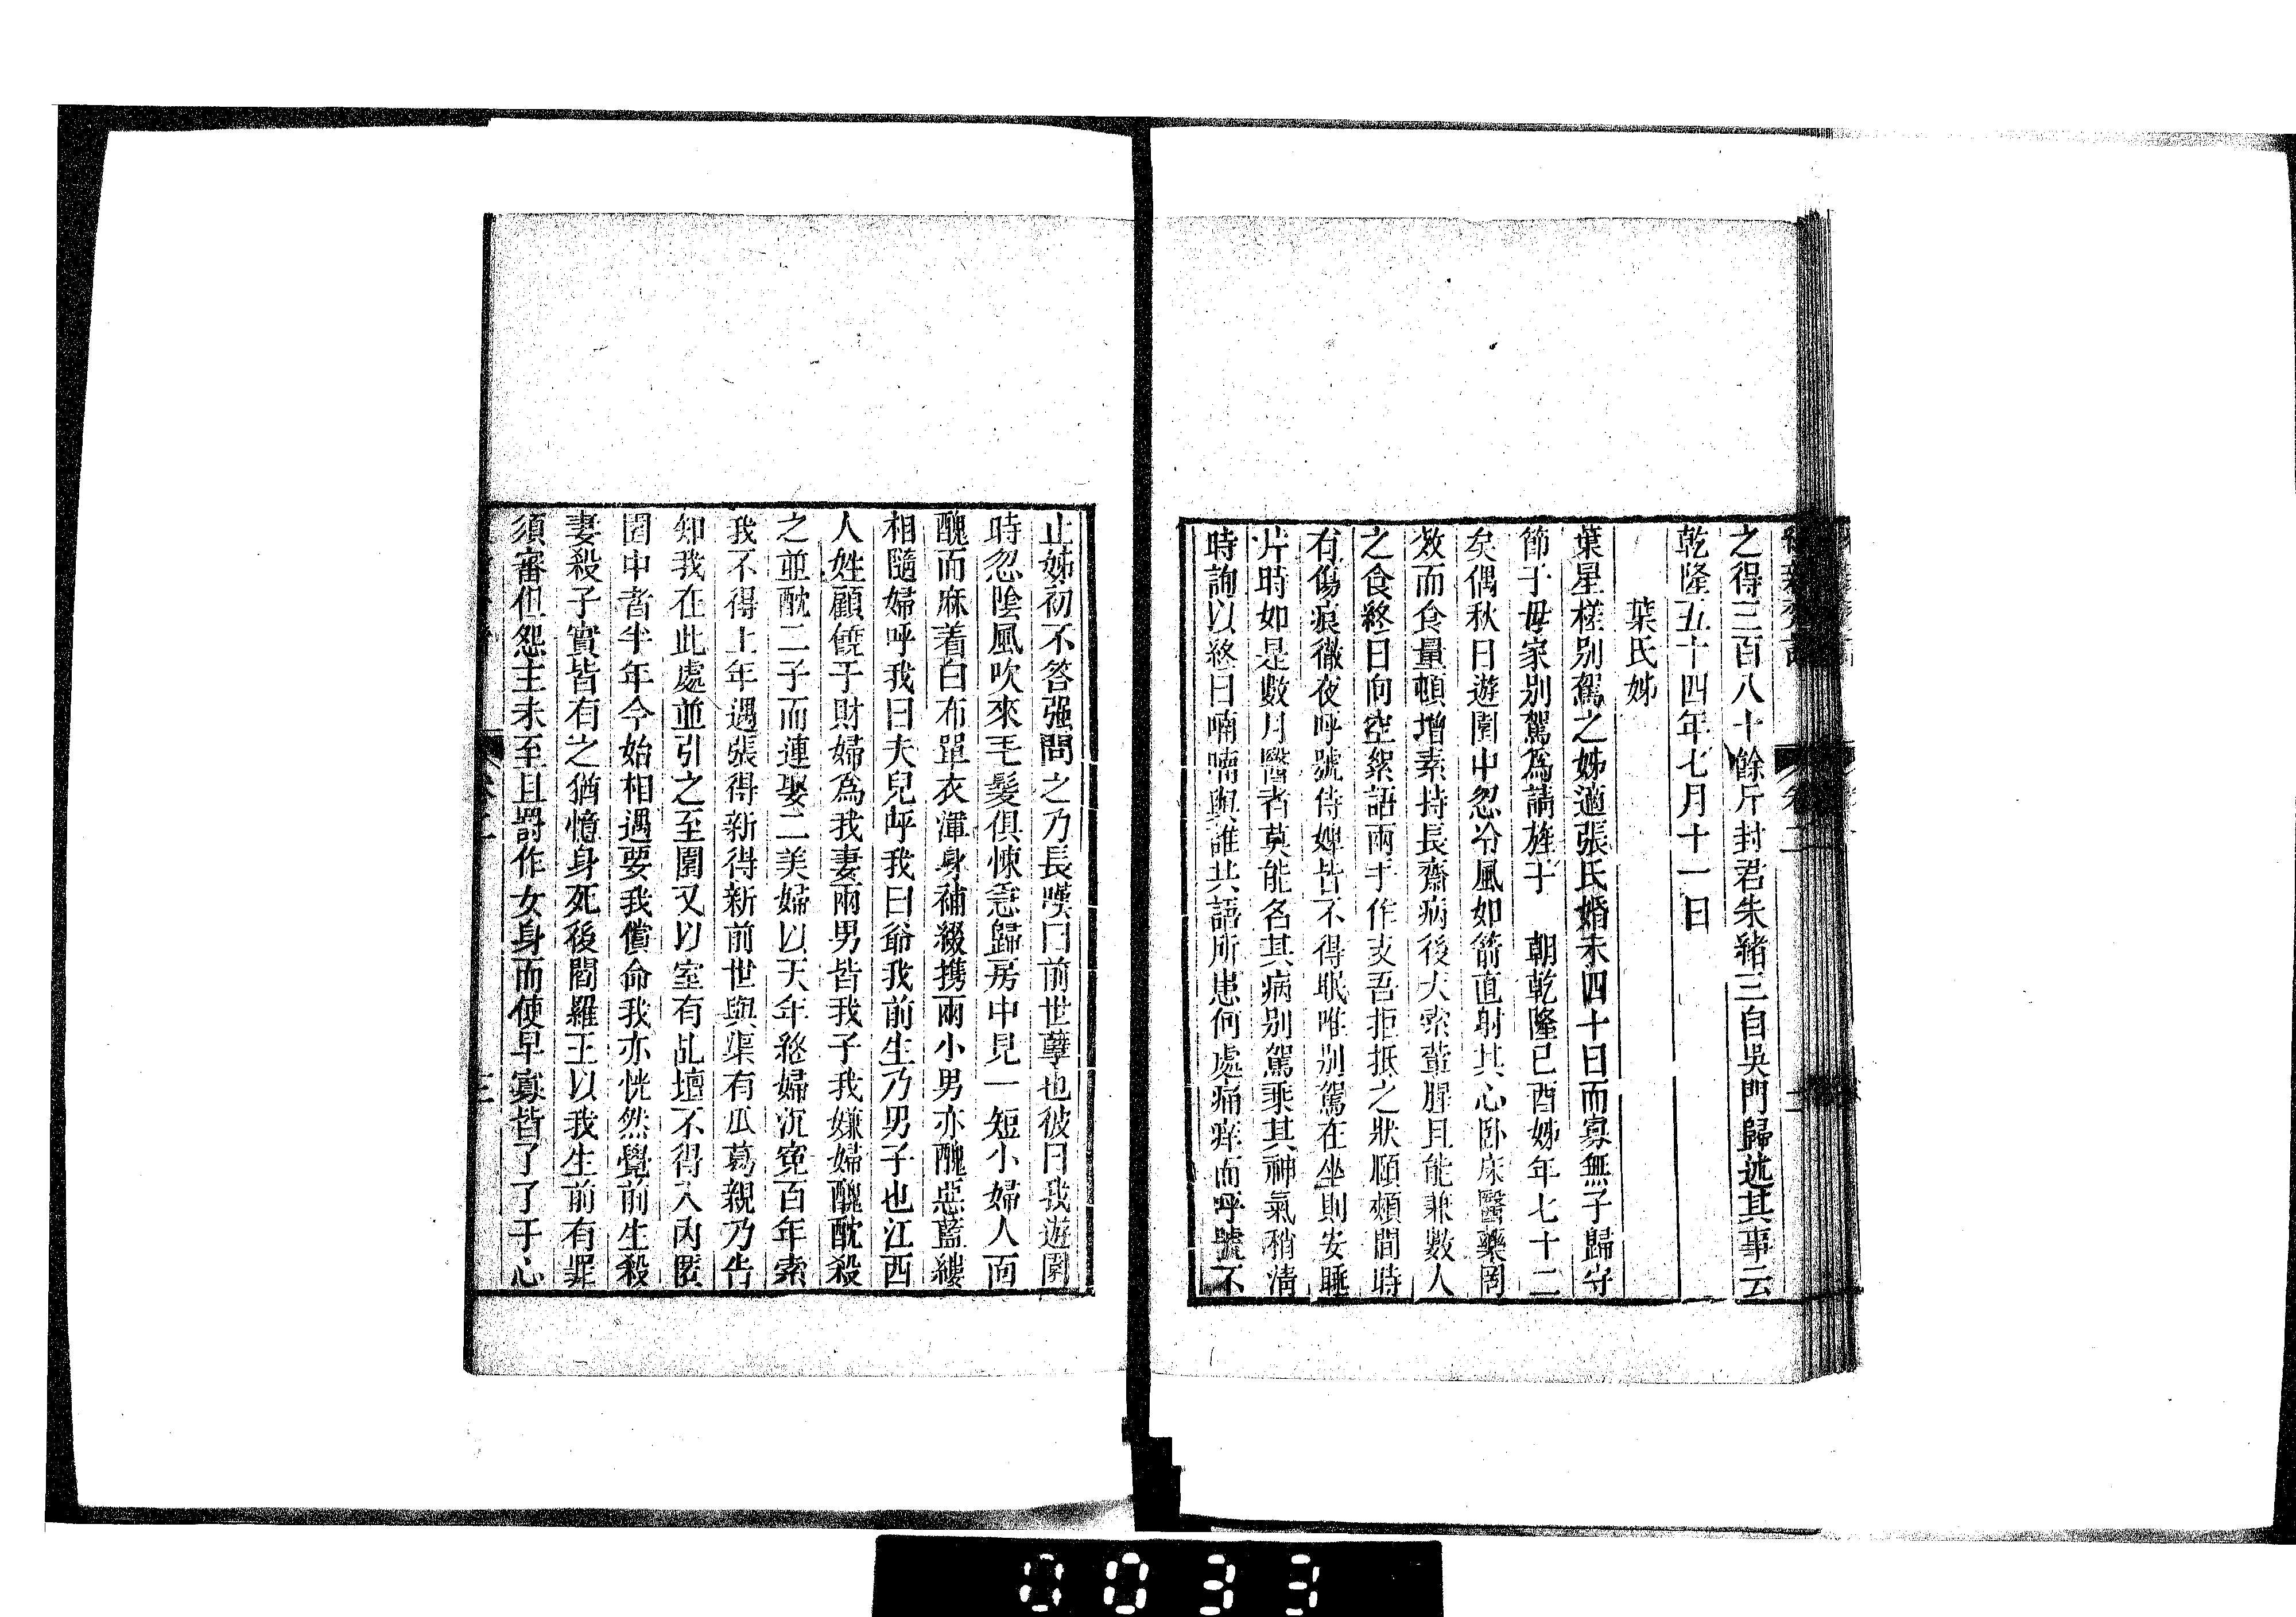 之得三百八十餘斤封君朱緒三自吳門歸述其事云
乾隆五十四年七月十一日
葉氏姊
葉星槎別駕之姊適張氏婚未四十日而寡無子歸守
節于母家別駕爲請旌于 朝乾隆己酉姊年七十二
矣偶秋日遊園中忽冷風如箭直射其心卧床醫藥罔
效而食量頓增素持長齋病後大索葷腥且能兼數人
之食終日向空絮語兩手作支吾拒抵之狀頤頰間時
有傷痕徹夜呼號侍婢皆不得眠唯別駕在坐則安睡
片時如是數月醫者莫能名其病別駕乘其神氣稍清
時詢以終日喃喃與誰共語所患何處痛痒而呼號不
止姊初不答强問之乃長嘆曰前世孽也彼日我遊園
時忽陰風吹來毛髮俱悚急歸房中見一短小婦人面
醜而麻着白布單衣渾身補綴携兩小男亦醜惡藍縷
相隨婦呼我曰夫兒呼我曰爺我前生乃男子也江西
人姓顧饒于財婦爲我妻兩男皆我子我嫌婦醜酖殺
之並酖二子而連娶二美婦以天年終婦沉寃百年索
我不得上年遇張得新得新前世與渠有瓜葛親乃告
知我在此處並引之至園又以室有乩壇不得入內匿
園中者半年今始相遇要我償命我亦恍然覺前生殺
妻殺子實皆有之猶憶身死後閻羅王以我生前有罪
須審但怨主未至且罰作女身而使早寡皆了了于心
卷二
二
三